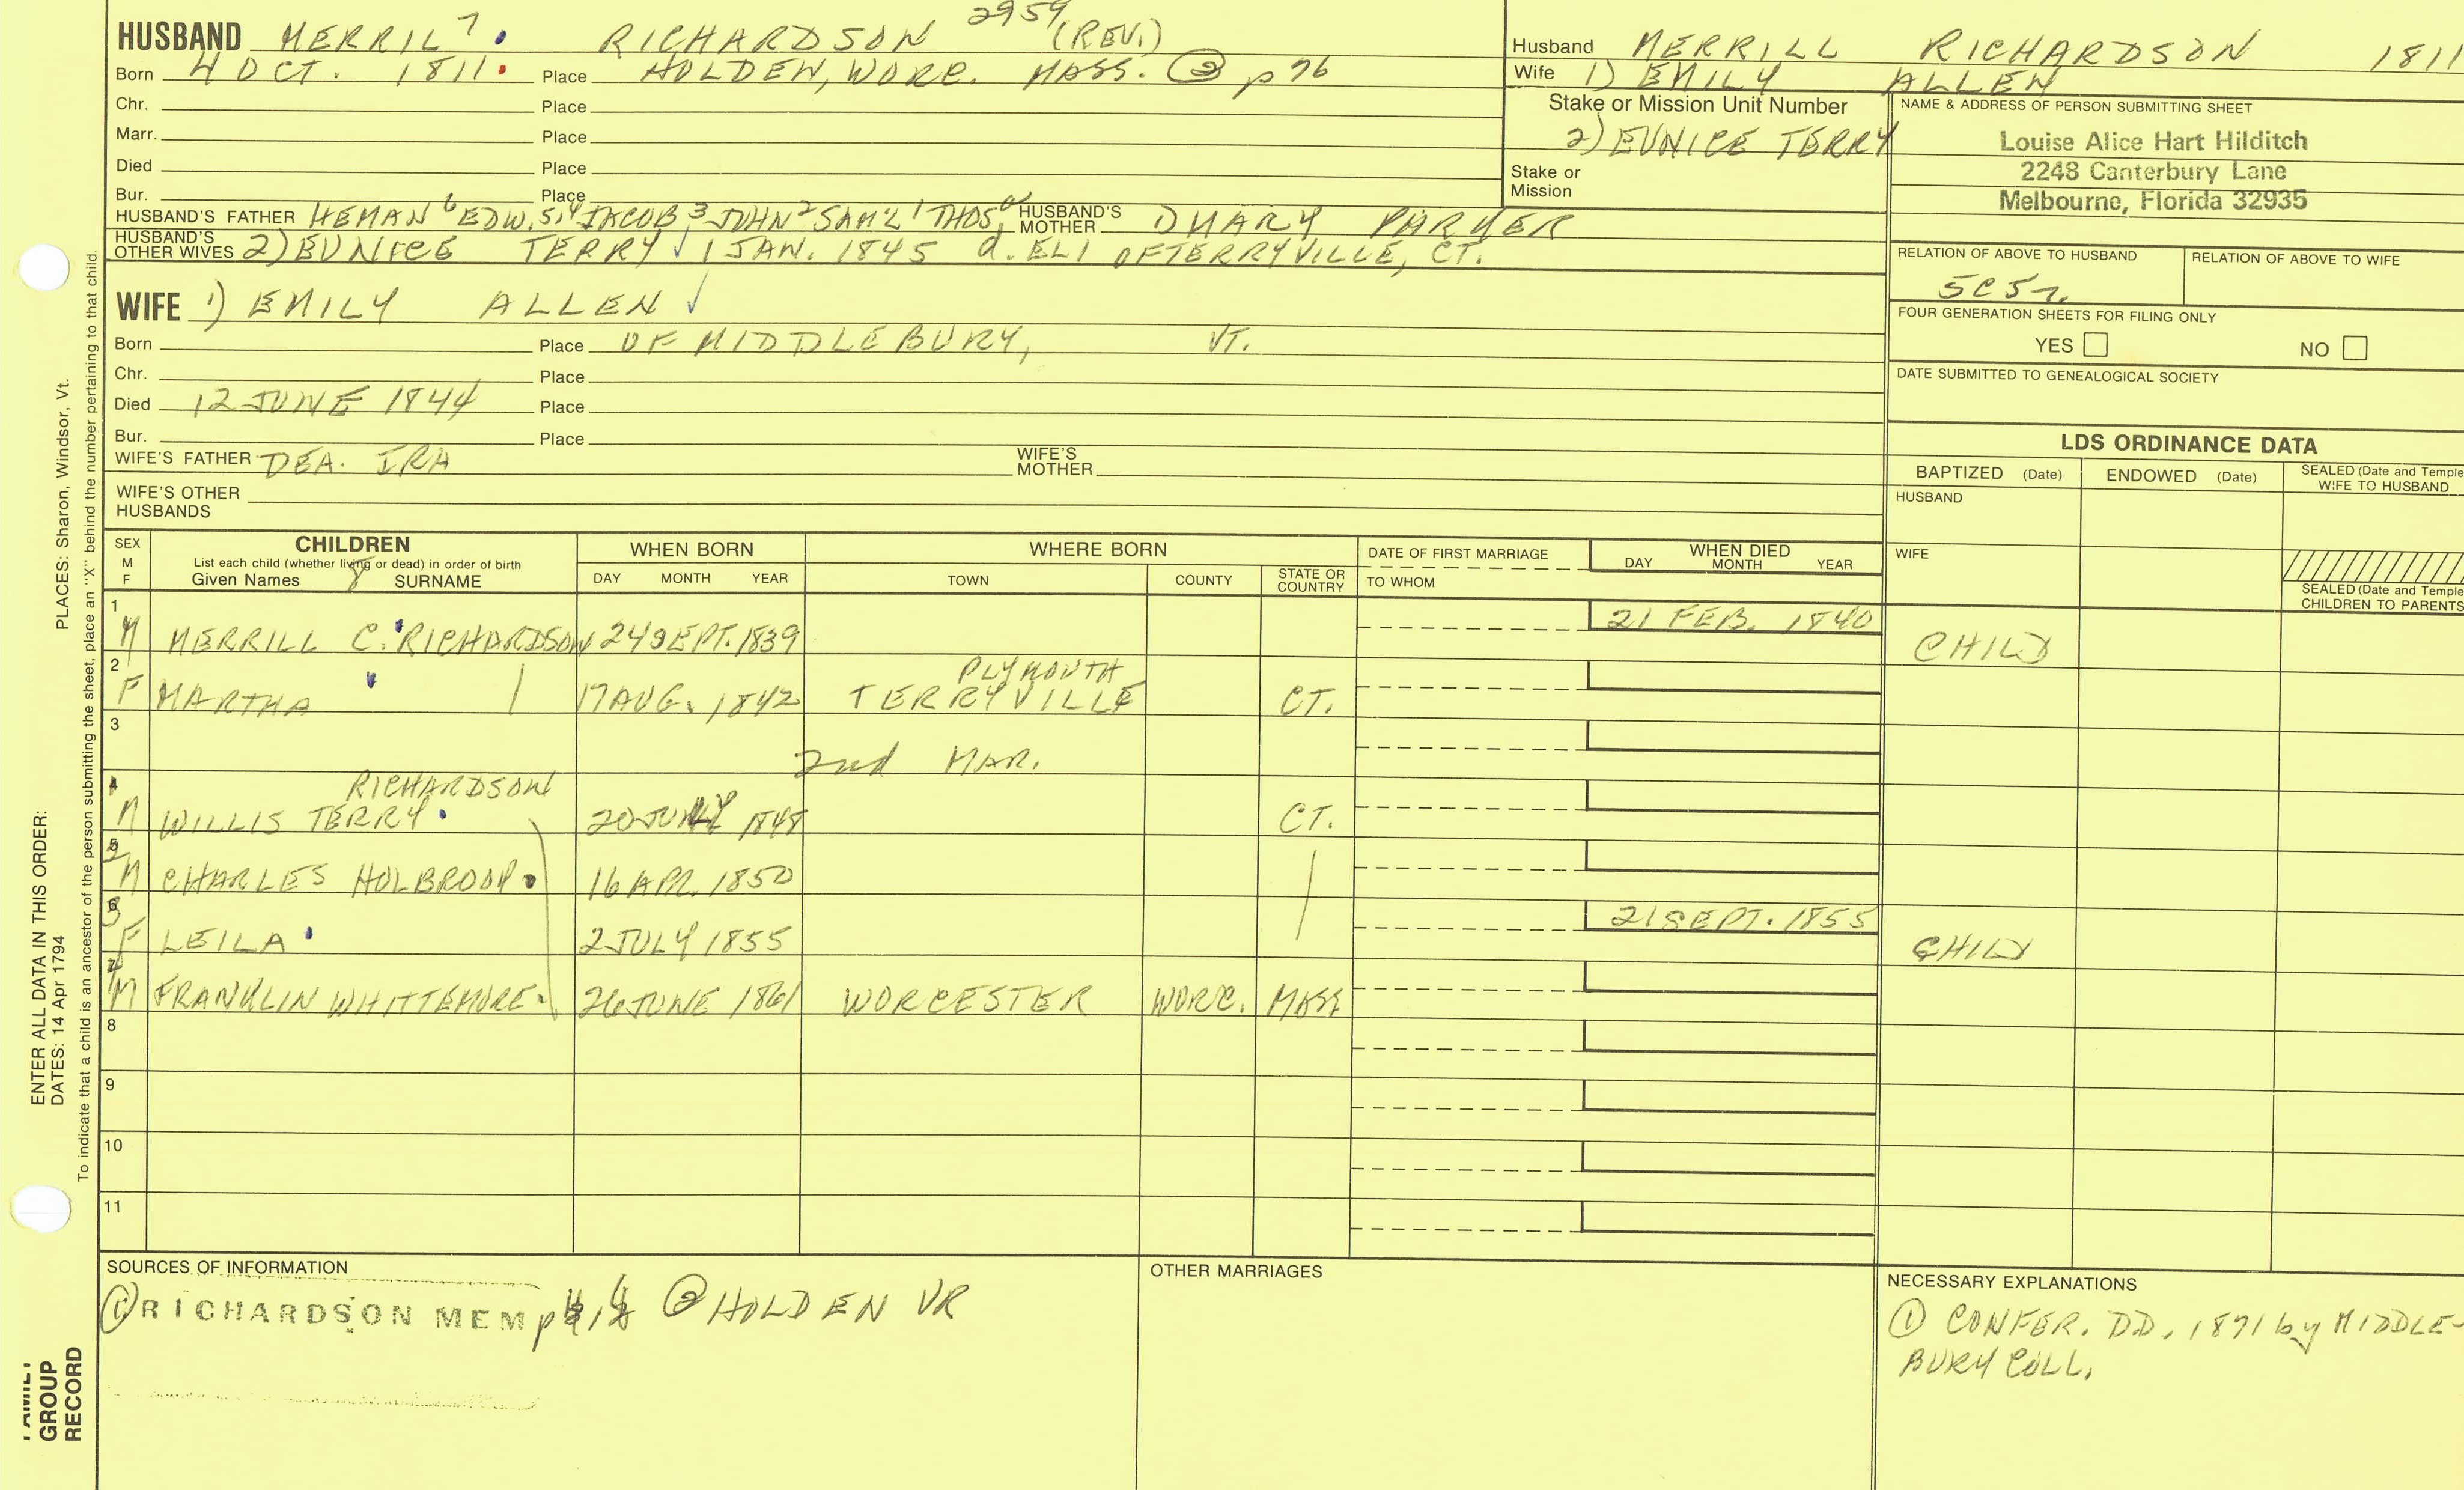 HUSBAND MERRIL 7. RICHARDSON 2959 (REV.)
Born 4 OCT. 1811. Place HOLDEN, WORC. MASS. ② p 76
Chr. Place
Marr. Place
Died Place
Bur. Place
HUSBAND'S FATHER HEMAN 6 EDW. 5, 4 JACOB 3 JOHN 2 SAM'L 1 THOS.
HUSBAND'S MOTHER MARY PARKER
HUSBAND'S OTHER WIVES 2) EUNICE TERRY ✓ 1 JAN. 1845 d. ELI OF TERRYVILLE, CT.
WIFE 1) EMILY ALLEN ✓
Born Place OF MIDDLEBURY, VT.
Chr. Place
Died 12 JUNE 1844 Place
Bur. Place
WIFE'S FATHER DEA. IRA WIFE'S MOTHER
WIFE'S OTHER HUSBANDS
Husband MERRILL RICHARDSON 1811
Wife 1) EMILY ALLEN
Stake or Mission Unit Number
2) EUNICE TERRY
Stake or Mission
NAME & ADDRESS OF PERSON SUBMITTING SHEET
Louise Alice Hart Hilditch
2248 Canterbury Lane
Melbourne, Florida 32935
RELATION OF ABOVE TO HUSBAND RELATION OF ABOVE TO WIFE
5C5r.
FOUR GENERATION SHEETS FOR FILING ONLY
YES NO
DATE SUBMITTED TO GENEALOGICAL SOCIETY
LDS ORDINANCE DATA
BAPTIZED (Date) ENDOWED (Date) SEALED (Date and Temple WIFE TO HUSBAND
HUSBAND
WIFE
SEALED (Date and Temple
CHILDREN TO PARENTS
SEX M F
CHILDREN
List each child (whether living or dead) in order of birth
Given Names 8 SURNAME
WHEN BORN
DAY MONTH YEAR
WHERE BORN
TOWN COUNTY STATE OR COUNTRY
DATE OF FIRST MARRIAGE
TO WHOM
WHEN DIED
DAY MONTH YEAR
1 M MERRILL C. RICHARDSON 24 SEPT. 1839 21 FEB. 1840 CHILD
2 F MARTHA 17 AUG. 1842 PLYMOUTH TERRYVILLE CT.
3 2nd MAR.
RICHARDSON
M WILLIS TERRY. 20 1848 CT.
M CHARLES HOLBROOK. 16 APR. 1850
F LEILA 2 JULY 1855 21 SEPT. 1855 CHILD
M FRANKLIN WHITTEMORE. 26 JUNE 1861 WORCESTER WORC. MASS
8
9
10
11
SOURCES OF INFORMATION
① RICHARDSON MEM p ② HOLDEN VR
OTHER MARRIAGES
NECESSARY EXPLANATIONS
① CONFER. D.D. 1871 by MIDDLE-
BURY COLL.
PLACES: Sharon, Windsor, Vt.
ENTER ALL DATA IN THIS ORDER:
DATES: 14 Apr 1794
To indicate that a child is an ancestor of the person submitting the sheet, place an "X" behind the number pertaining to that child.
FAMILY
GROUP
RECORD